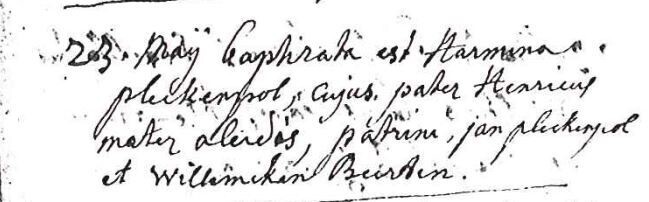 23. Maÿ baptizata est Harmina
pleckenpol, cujus pater Henricus
mater aleidis, patrini, jan pleckenpol
et Willemcken Beerten.